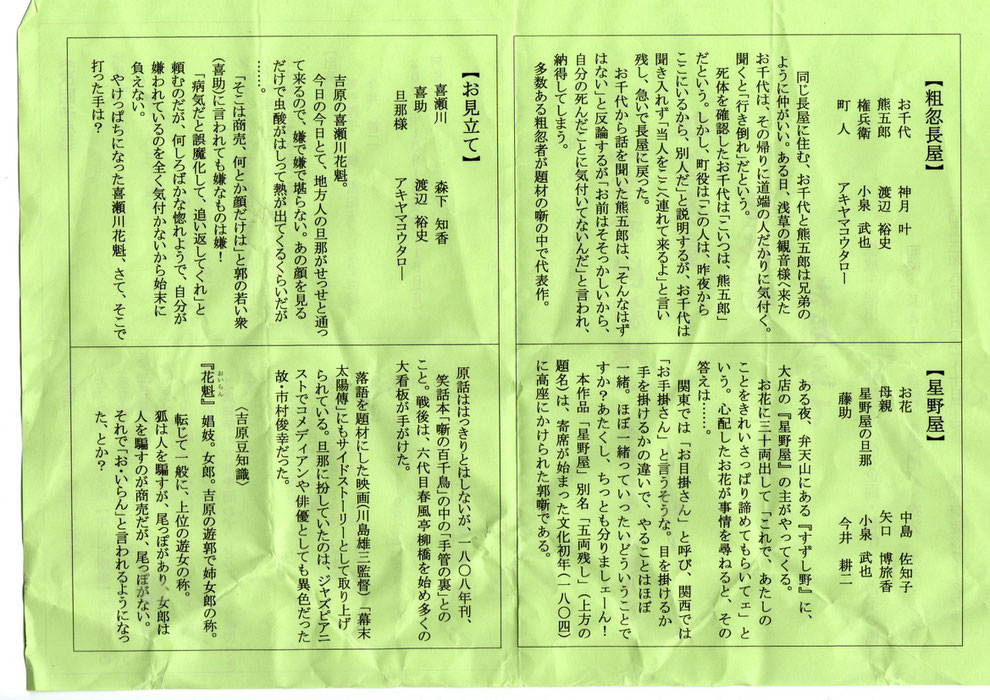 【粗忽長屋】
お千代　神月　叶
熊五郎　渡辺　裕史
権兵衛　小泉　武也
町　人　アキヤマコウタロー
同じ長屋に住む、お千代と熊五郎は兄弟の
ように仲がいい。ある日、浅草の観音様へ来た
お千代は、その帰りに道端の人だかりに気付く。
聞くと「行き倒れ」だという。
死体を確認したお千代は「こいつは、熊五郎」
だという。しかし、町役は「この人は、昨夜から
ここにいるから、別人だ」と説明するが、お千代は
聞き入れず「当人をここへ連れて来るよ」と言い
残し、急いで長屋に戻った。
お千代から話を聞いた熊五郎は、「そんなはず
はない」と反論するが「お前はそそっかしいから、
自分の死んだことに気付いてないんだ」と言われ、
納得してしまう。
多数ある粗忽者が題材の噺の中で代表作。
【星野屋】
お花　中島　佐知子
母親　矢口　博旅香
星野屋の旦那　小泉　武也
藤助　今井　耕二
ある夜、弁天山にある『すずし野』に、
大店の『星野屋』の主がやってくる。
お花に三十両出して「これで、あたしの
ことをきれいさっぱり諦めてもらいてェ」と
いう。心配したお花が事情を尋ねると、その
答えは……。
関東では「お目掛さん」と呼び、関西では
「お手掛さん」と言うそうな。目を掛けるか
手を掛けるかの違いで、やることはほぼ
一緒。ほぼ一緒っていったいどういうことで
すか？あたくし、ちっとも分りましェーん！
本作品「星野屋」別名「五両残し」（上方の
題名）は、寄席が始まった文化初年（一八〇四）
に高座にかけられた郭噺である。
【お見立て】
喜瀬川　森下　知香
喜助　渡辺　裕史
旦那様　アキヤマコウタロー
吉原の喜瀬川花魁。
今日の今日とて、地方人の旦那がせっせと通っ
て来るので、嫌で嫌で堪らない。あの顔を見る
だけで虫酸がはしって熱が出てくるくらいだが
……。
「そこは商売、何とか顔だけは」と郭の若い衆
（喜助）に言われても嫌なものは嫌！
「病気だと誤魔化して、追い返してくれ」と
頼むのだが、何しろばかな惚れようで、自分が
嫌われているのを全く気付かないから始末に
負えない。
やけっぱちになった喜瀬川花魁、さて、そこで
打った手は？
原話ははっきりとはしないが、一八〇八年刊、
笑話本「噺の百千鳥」の中の「手管の裏」との
こと。戦後は、六代目春風亭柳橋を始め多くの
大看板が手がけた。
落語を題材にした映画（川島雄三監督）「幕末
太陽傳」にもサイドストーリーとして取り上げ
られている。旦那に扮していたのは、ジャズピアニ
ストでコメディアンや俳優としても異色だった
故・市村俊幸だった。
〈吉原豆知識〉
『花魁』　娼妓。女郎。吉原の遊郭で姉女郎の称。
おいらん
転じて一般に、上位の遊女の称。
狐は人を騙すが、尾っぽがあり、女郎は
人を騙すのが商売だが、尾っぽがない。
それで「お・いらん」と言われるようになっ
た、とか？